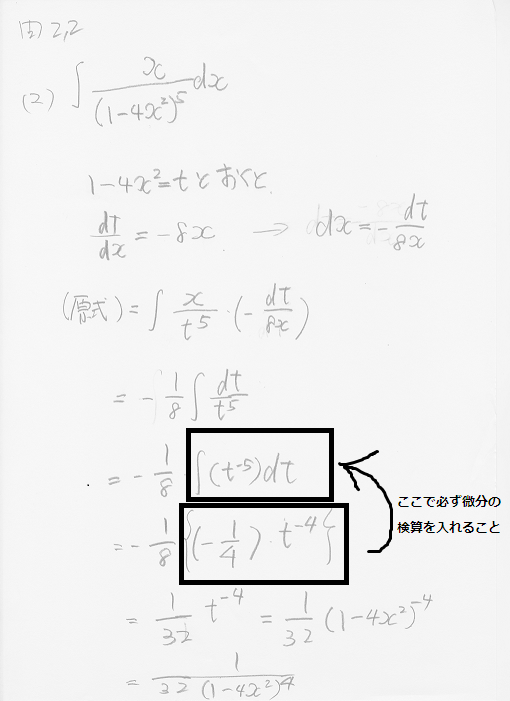 問2,2
(2) ∫ x/(1-4x²)⁵ dx
1-4x²=t とおくと、
dt/dx = -8x → dx = - dt/8x
(原式) = ∫ x/t⁵ · (- dt/8x)
= - 1/8 ∫ dt/t⁵
= - 1/8 ∫(t⁻⁵)dt
ここで必ず微分の
検算を入れること
= - 1/8 {(- 1/4) · t⁻⁴}
= 1/32 t⁻⁴ = 1/32 (1-4x²)⁻⁴
= 1/32(1-4x²)⁴